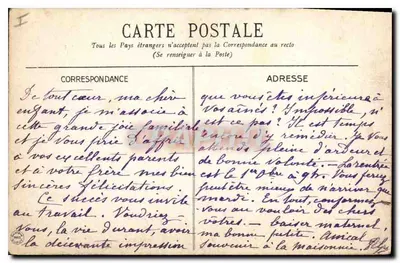 I
CARTE POSTALE
Tous les Pays étrangers n'acceptent pas la Correspondance au recto
(Se renseigner à la Poste)
CORRESPONDANCE
De tout cœur, ma chère
enfant, je m'associe à
cette grande joie familiale
et je vous prie d'offrir
à vos excellents parents
et à votre frère mes bien
sincères félicitations.
Ce succès vous invite
au travail. Voudriez
vous, la vie durant, avoir
la décevante impression
ADRESSE
que vous êtes inférieure à
vos aînés? Impossible, n'
est ce pas? Il est temps
d'y remédier. Je vous
attends pleine d'ardeur et
de bonne volonté. - La rentrée
est le 1er 8bre à 9h. Vous ferez
peut être mieux de n'arriver que
mardi. En tout, conformez
vous au vouloir des chers
vôtres. - baiser maternel,
ma bonne petite. Amical
souvenir à la maisonnée.